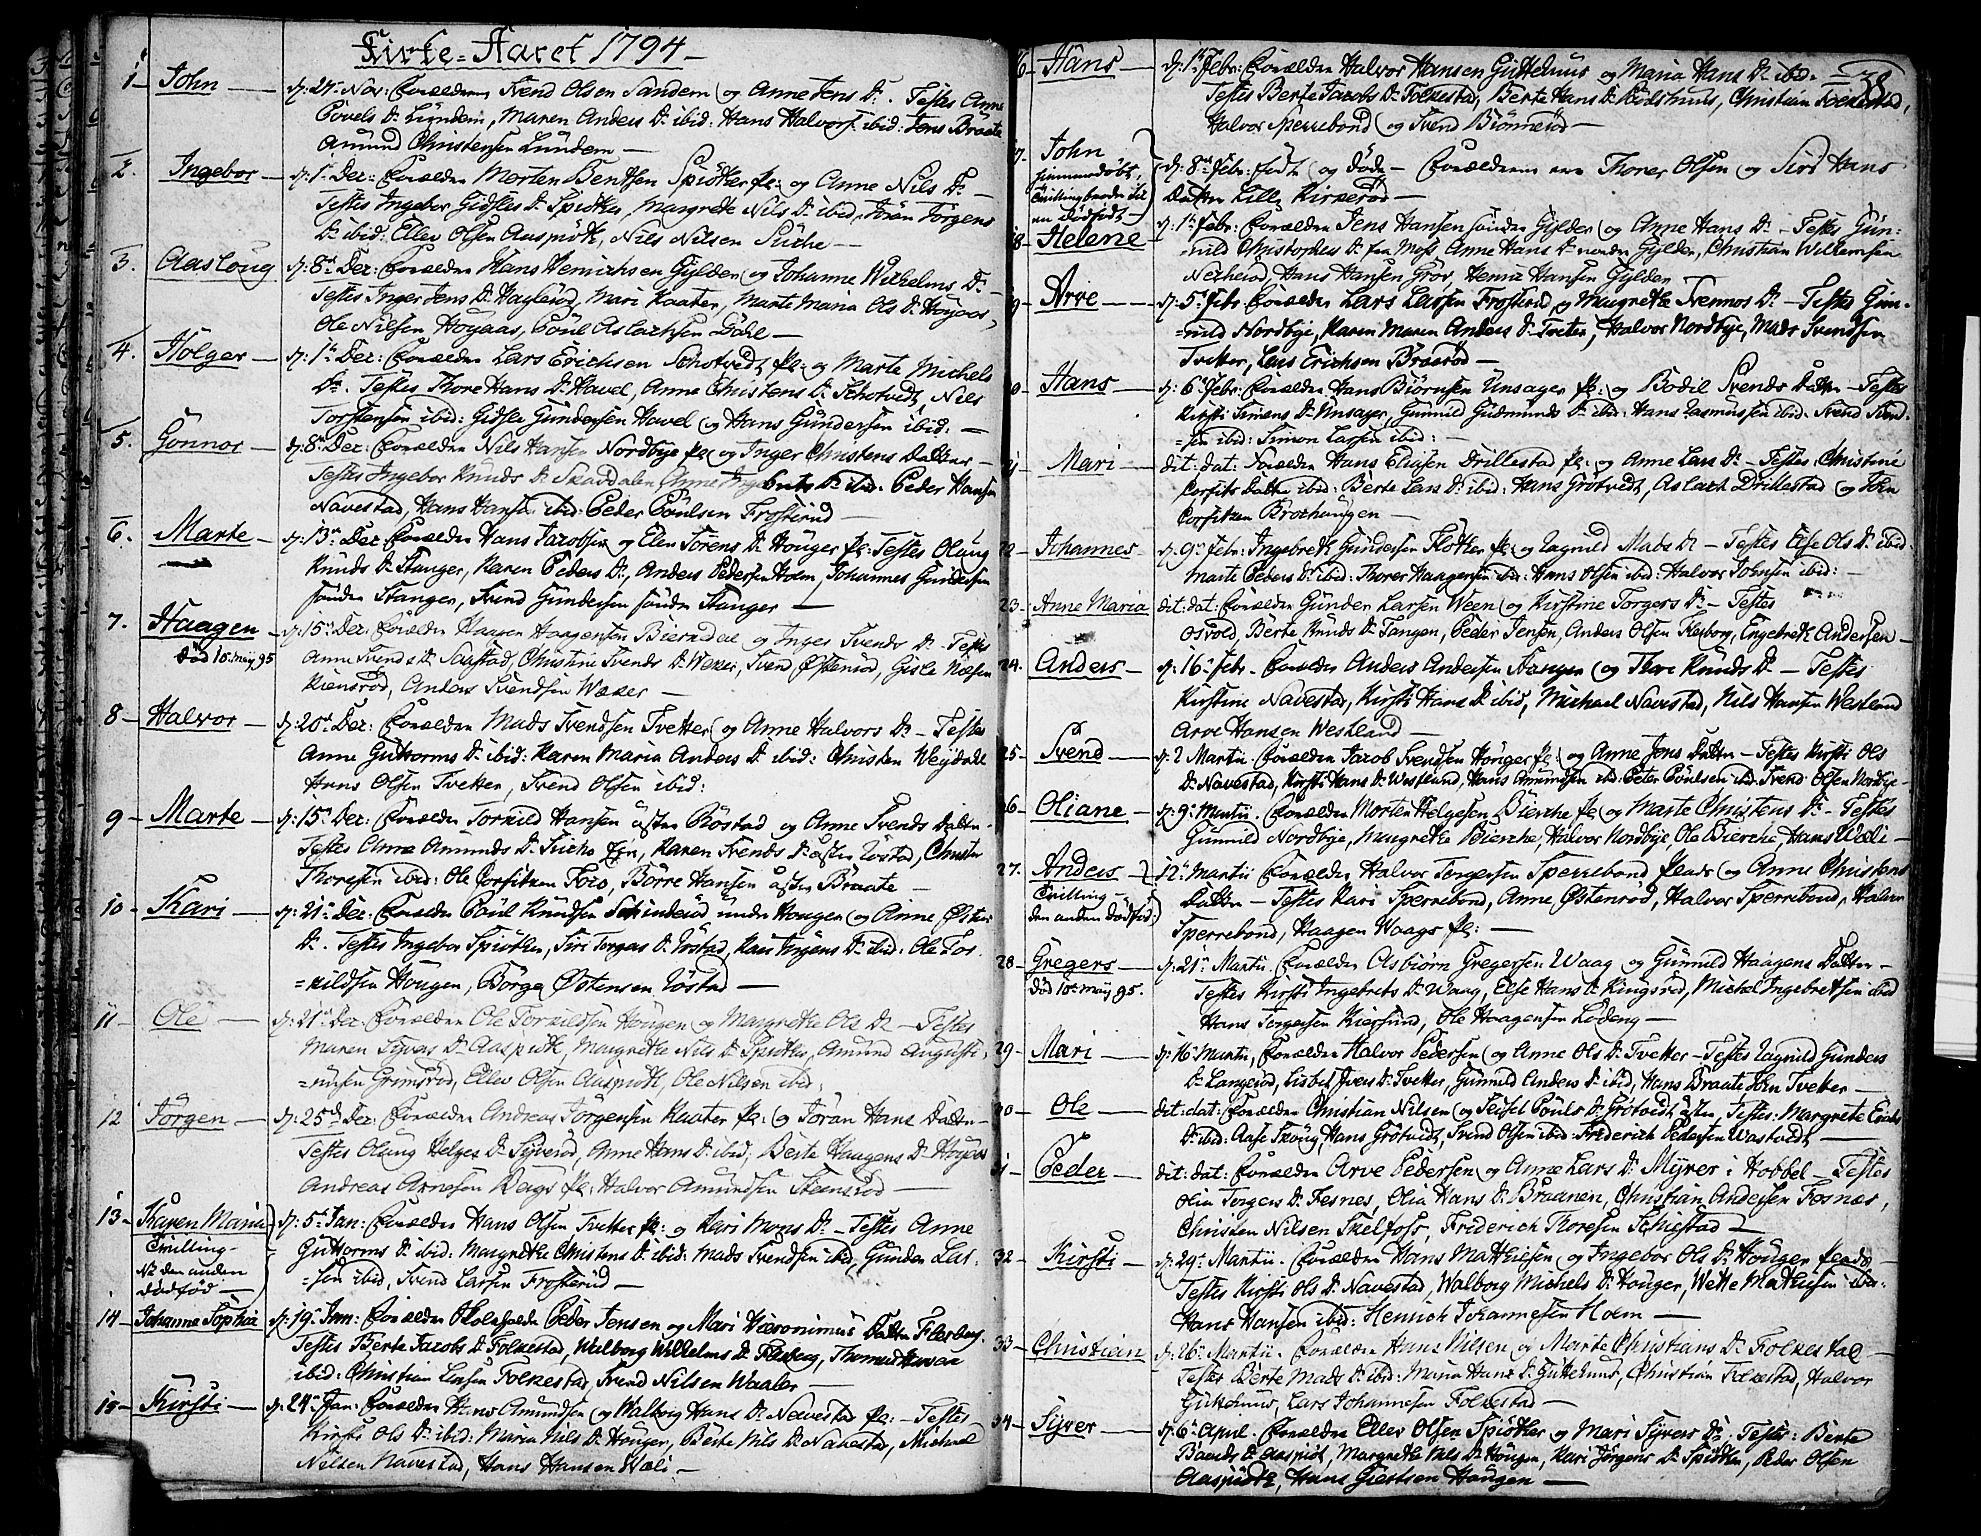 Kirke-Aaret 1794
1 John d: 27 Nov: Forældre Svend Olsen Sandem og Anne Jens Dr. Testes Anne
Povels Dr Lundem, Maren Anders Dr ibid: Hans Halvors. ibid: Jens Braate
Amund Christensen Lundem
2. Ingebor d: 1 Dec: Forældre Morten Bentsen Spiötker pl: og Anne Nils Dr
Testes Ingebor Gidsles Dr Spiötker, Margrete Nils Dr ibid, Jöran Jörgens
Dr ibid: Ellev Olsen Aaspiötk, Nils Nilsen
3. Aasloug d: 8 Dec: Forældre Hans Henrichsen Gylder og Johanne Wilhelms Dr
Testes Inger Jens Dr Hagleröd, Mari Kaater, Marte Maria Ols Dr Höyaas,
Ole Nilsen Höyaas, Poul Aslachsen Dahl
4. Holger d: 1 Dec: Forældre Lars Erichsen Schotvedt pl: og Marte Michels
Dr. Testes Thore Hans Dr Havel, Anne Christens Dr Schotvedt, Nils
Torstensen ibid: Gidsle Gundersen Havel og Hans Gundersen ibid:
5. Gonnor d: 8 Dec: Forældre Nils Hansen Nordbye pl: og Inger Christens Datter
Testes Ingebor Knuds Dr Skaddalen Anne Dr ibid. Peder Hansen
Navestad, Hans Hansen ibid: Peder Poulsen Frosterud
6. Marte d: 13 Dec Forældre Hans Jacobsen og Ellen Sörens Dr Houger pl: Testes Oloug
Knuds Dr Stanger, Karen Peders Dr, Anders Pedersen Holm, Johannes Gundersen
sönder Stanger, Svend Gundersen sönder Stanger
7. Haagen d: 15 Dec: Forældre Haagen Haagensen Bierndal og Inger Svends Dr Testes
död 10 may 95 Anne Svends Dr Saastad, Christine Svends Dr Wexer, Svend Östenröd, Gisle Nilsen
Kiensröd, Anders Svendsen Wexer
8 Halvor d: 20 Dec: Forældre Mads Svendsen Tvetter og Anne Halvors Dr Testes
Anne Guttorms Dr ibid: Karen Maria Anders Dr ibid: Christen
Hans Olsen Tvetter, Svend Olsen ibid:
9 Marte d: 15 Dec: Forældre Torkild Hansen östre Röstad og Anne Svends Datter
Testes Anne Amunds Dr, Karen Svends Dr östre Röstad, Christen
Thoresen ibid: Ole Corfitzen Foss, Börre Hansen östre Braate
10 Kari d: 21 Dec: Forældre Poul Knudsen under Hougen og Anne Östens
Dr. Testes Ingebor Spiötker, Siri Torgers Dr Röstad, Kari Jörgens Dr ibid: Ole Tor-
=kildsen Hougen, Börge Östensen Röstad
11 Ole d: 21 Dec: Forældre Ole Torkildsen Hougen og Margrethe Ols Dr Testes
Maren Syvers Dr Aaspiötk, Margrethe Nils Dr Spiötker, Amund Augusti-
=nusen Grimsröd, Ellev Olsen Aaspiötk, Ole Nilsen ibid:
12 Jörgen d: 25 Dec: Forældre Andreas Jörgensen Kaater pl: og Jöran Hans Datter
Testes Oloug Helges Dr, Anne Hans Dr ibid; Berte Haagens Dr Höyaas
Andreas Arnesen pl: Halvor Amundsen Steensröd
13 Karen Maria d: 5 Jan: Forældre Hans Olsen Tvetter pl: og Kari Mons Dr Testes Anne
Tvilling Guttorms Dr ibid: Margrethe Christens Dr ibid: Mads Svendsen ibid, Gunder Lar-
NB den anden dödfød =sen ibid, Svend Larsen Frosterud
14 Johanne Sophia d: 19 Jan: Forældre Skoleholder Peder Jensen og Mari Hieronimus Datter
Testes Berte Jacobs Dr Folkestad, Walborg Willhelms Dr, Thomas Hansen
ibid: Christian Larsen Folkestad, Svend Nilsen Waaler
15 Kirsti d: 24 Jan: Forældre Hans Amundsen og Walborg Hans Dr Navestad pl: Testes
Kirsti Ols Dr ibid: Maria Nils Dr Houger, Berte Nils Dr Navestad, Michael
Nilsen Navestad, Hans Hansen Wæli
38
16 Hans d: 1 Febr: Forældre Halvor Hansen Guttelhuus og Maria Hans Dr ibid.
Testes Berte Jacobs Dr Folkestad, Berte Hans Dr Bodshuus, Christian Folkestad,
Halvor Sperrebond og Svend Brönneröd
17 John d: 8 Febr: födt og döde Forældrene ere Thorer Olsen og Siri Hans
hiemmedöbt, Tvillingbroder til en dödfödt Datter Lille Kirkeröd
18 Helene d: 1 Febr: Forældre Jens Hansen sönder Gylder og Anne Hans Dr Testes Gun-
=nild Christophers Dr fra Moss Anne Hans Dr nordre Gylder, Christian Willumsen
Hans Hansen Gröv, Henric Hansen Gylder
19 Arve d: 5 Febr Forældre Lars Larsen Frosterud og Margrethe Svennos Dr Testes Gun-
=nild Nordbye, Karen Maren Anders Dr Tvetter, Halvor Nordbye, Mads Svendsen
Tvetter, Lars Erichsen Braröd
20 Hans d: 6 Febr: Forældre Hans Biörnsen Unsager pl: og Bodil Svends Datter Testes
Kirsti Simens Dr Unsager, Gunnild Gudmunds Dr ibid: Hans Rasmussen ibid: Svend Svend-
=sen ibid: Simon Larsen ibid:
21 Mari dit: dat: Forældre Hans Eliasen Drillestad pl: og Anne Lars Dr Testes Christine
Corfits Datter ibid: Berte Lars Dr ibid: Hans Grötvedt, Aslach Drillestad og John
Corfitzen Brochaugen
22 Johannes d: 9 Febr: Ingebreth Gundersen Flötker pl: og Ragnild Mads Dr Testes Else Ols Dr ibid.
Marte Peders Dr ibid: Thorer Haagensen ibid: Hans Olsen ibid: Halvor Johnsen ibid:
23 Anne Maria dit: dat: Forældre Gunder Larsen Ween og Kirstine Torgers Dr Testes
Osvold, Berte Knuds Dr Tangen, Peder Jensen, Anders Olsen, Engebreth Andersen
24. Anders d: 16 Febr. Forældre Anders Andersen Haugen og Thore Knuds Dr Testes
Kirstine Navestad, Kirsti Hans Dr ibid, Michael Navestad, Nils Hansen Westlund
Arve Hansen Westlund
25 Svend d: 2 Martii Forældre Jacob Svendsen Houger pl: og Anne Jens Datter Testes Kirsti Ols
Dr Navestad, Kirsti Hans Dr Westlund, Hans Amundsen ibid: Peter Poulsen ibid Svend Olsen Nordbye
26 Oliane d: 9 Martii. Forældre Morten Helgesen Bierche pl: og Marte Christens Dr Testes
Gunnild Nordbye, Margrethe Bierche, Halvor Nordbye, Ole Bierche, Hans Wæli
27. Anders 12 Martii Forældre Halvor Torgersen Sperrebond plads og Anne Christens
Tvilling den anden dödfød: Datter Testes Kari Sperrebond, Anne Östenröd, Halvor Sperrebond,
Sperrebond, Haagen Waags pl:
28 Gregers d: 21 Martii. Forældre Asbiörn Gregersen Waag og Gunnild Haagens Datter
död 10 may 95. Testes Kirsti Ingebrets Dr Waag, Else Hans Dr Kingsröd, Michel Ingebretsen ibid
Hans Torgersen Kiersund, Ole Haagensen Lödeng
29 Mari d: 16 Martii, Forældre Halvor Pedersen og Anne Ols Dr Tvetter Testes Ragnild Gunders
Dr Langeröd, Lisbet Ivers Dr Tvetter, Gunnild Anders Dr ibid, Hans Braate John Tvetter
30 Ole dit: dat: Forældre Christian Nilsen og Sidsel Pouls Dr Grötvedt östre, Testes: Margrete Erichs
Dr ibid: Aase Skoug, Hans Grötvedt, Svend Olsen ibid: Friderich Pedersen Wastvedt
31 Peder dit: dat: Forældre Arve Pedersen og Anne Lars Dr Myrer i Hobbel Testes
Olia Torgers Dr Fesnes, Olia Hans Dr Braanen, Christian Andersen Fosnæs,
Christen Nilsen Skelfoss, Friderich Thoresen
32 Kirsti d: 29 Martii. Forældre Hans Matthiesen og Ingebor Ols Dr Houger plads
Testes Kirsti Ols Dr Navestad, Walborg Michels Dr Houger, Wette Mathiesen ibid.
Hans Hansen ibid: Henrich Johannesen Holm
33 Christian d: 26 Martii. Forældre Hans Nilsen og Marte Christians Dr Folkestad
Testes Berte Mads Dr ibid: Maria Hans Dr Guttelhuus, Christian Folkestad, Halvor
Guttelhuus, Lars Johannesen Folkestad
34 Syver d: 6 April. Forældre Ellev Olsen Spiötker og Mari Syvers Dr: Testes: Berte
Baards Dr Aaspiöt, Margrethe Nils Dr Hougen, Kari Jörgens Dr Spiötker, Peder Olsen
Aaspiötk, Hans Giertsen Hougen